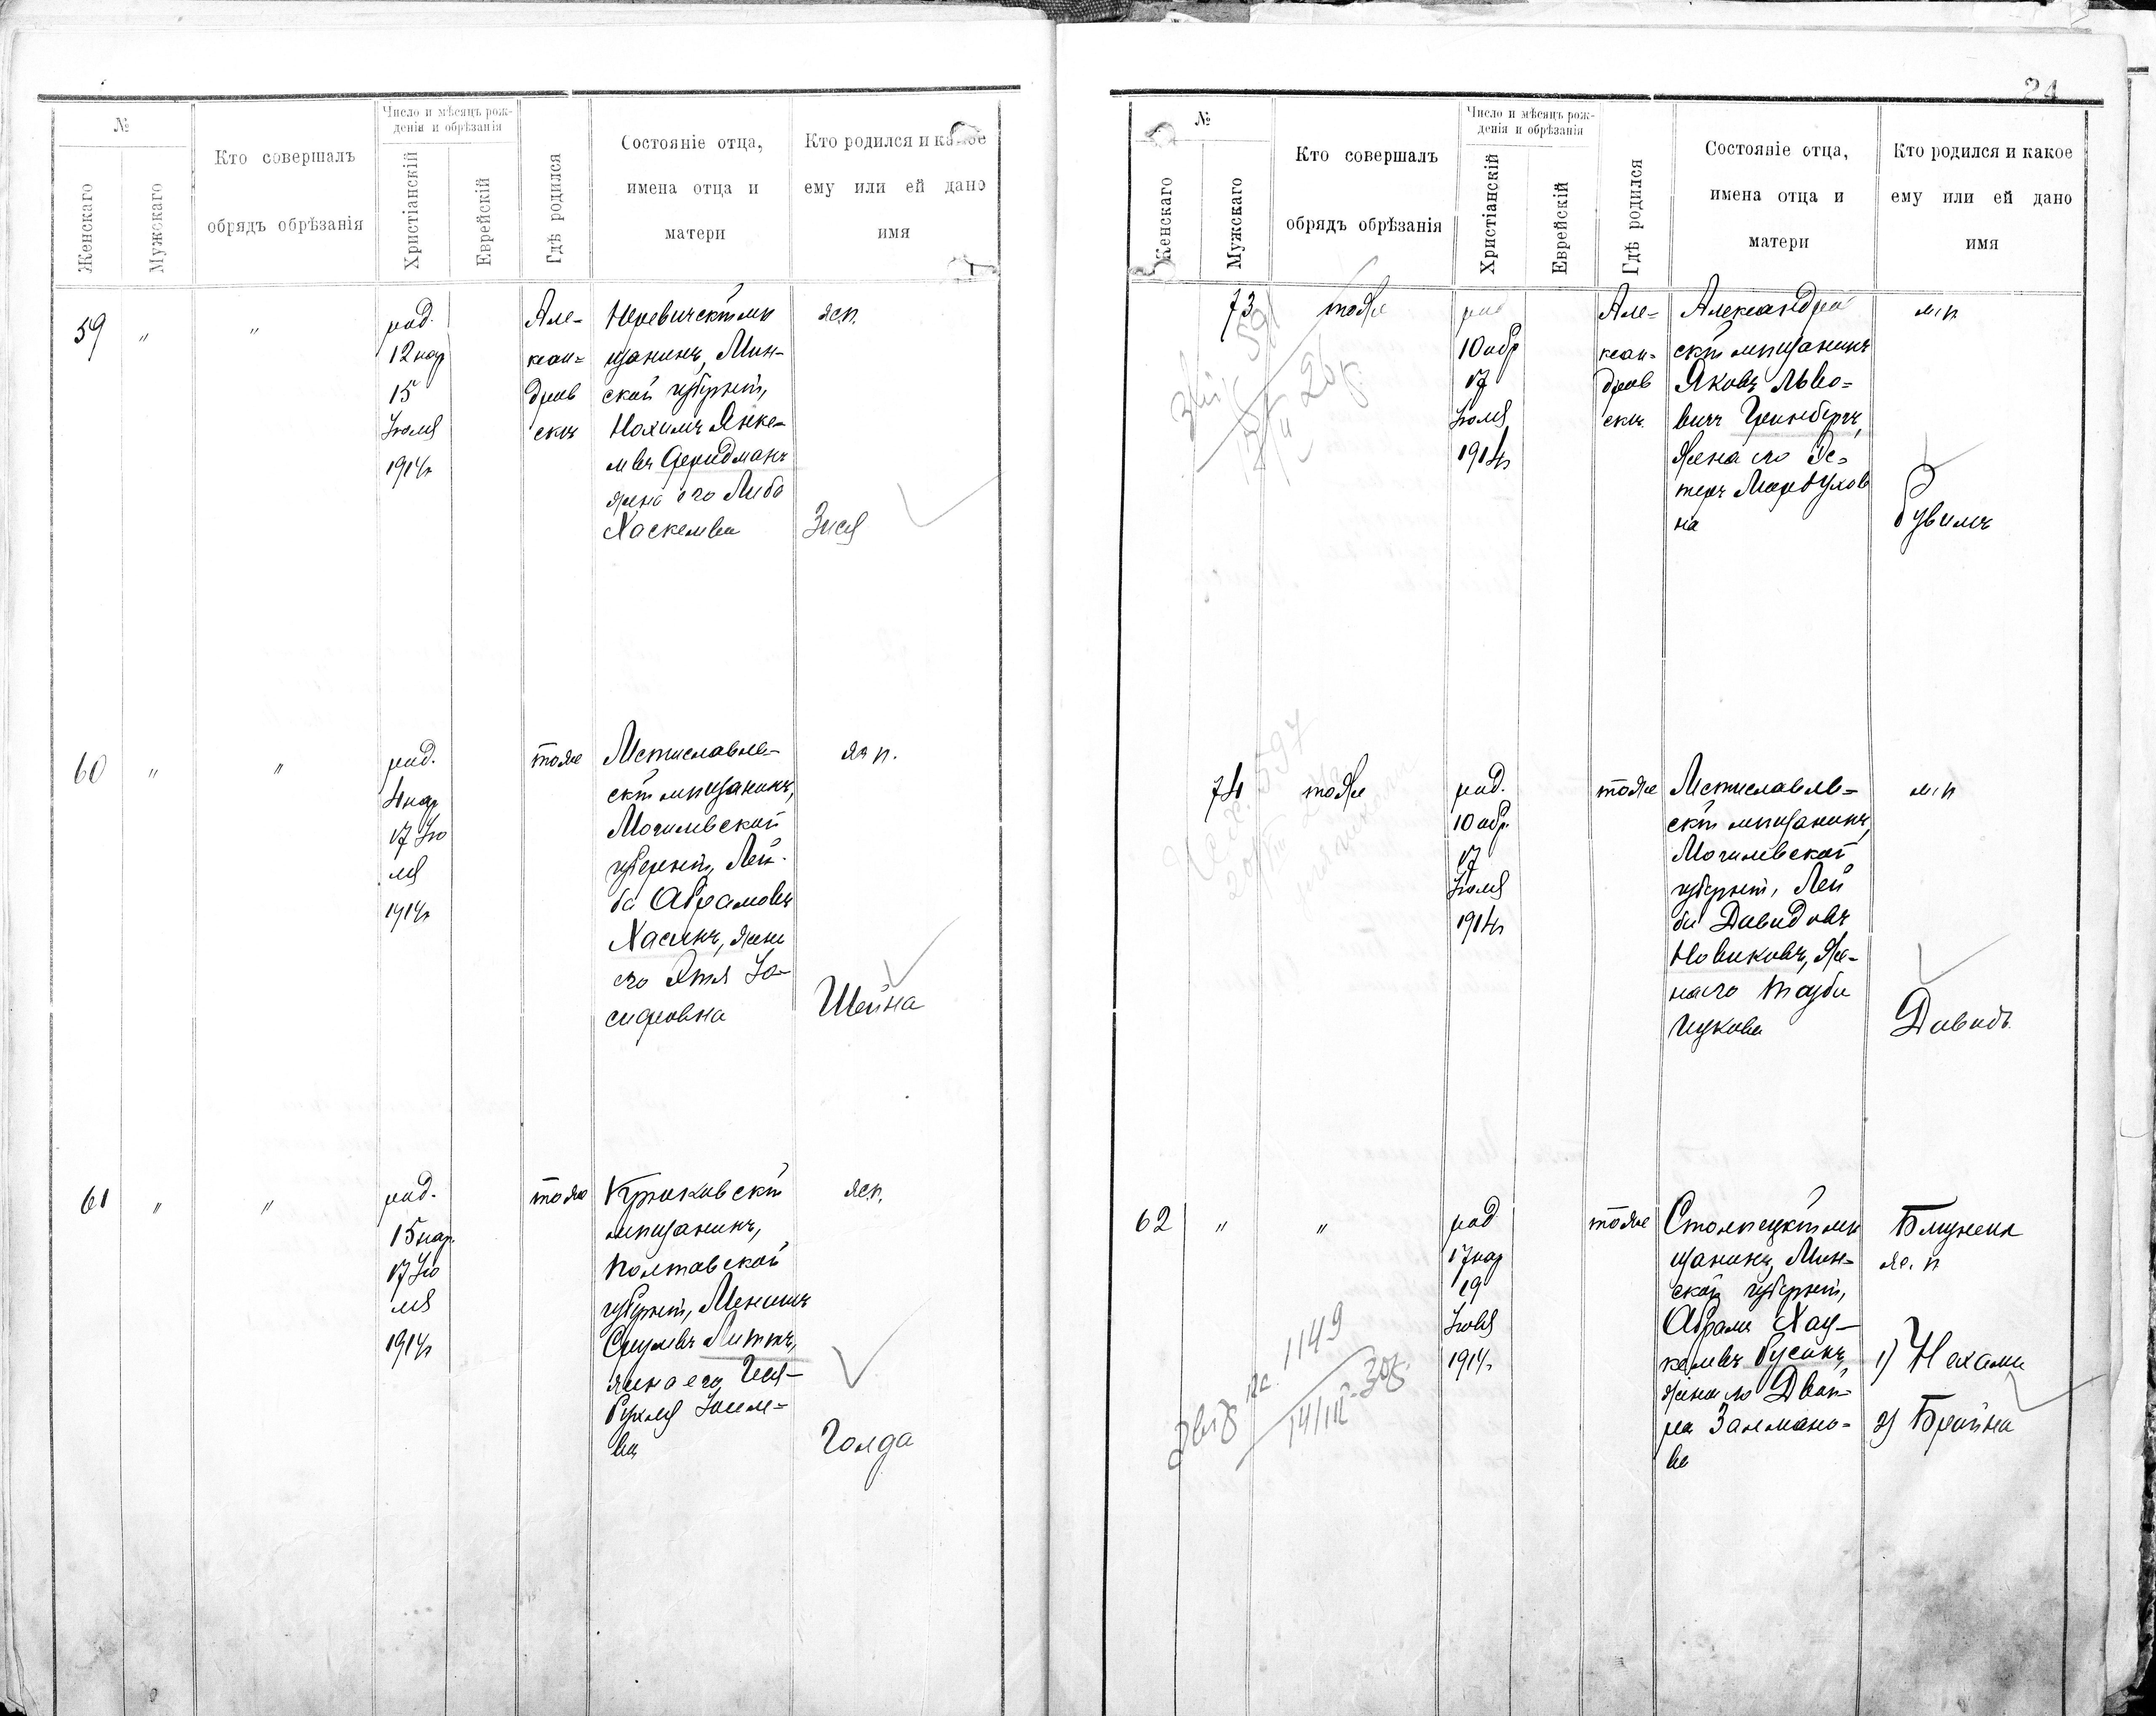 №
Женскаго
Мужскаго
Кто совершалъ
обрядъ обрѣзанія
Число и мѣсяцъ рож-
денія и обрѣзанія
Христіанскій
Еврейскій
Гдѣ родился
Состояніе отца,
имена отца и
матери
Кто родился и какое
ему или ей дано
имя
59
"
"
род.
12 нар
15
Іюля
1914г
Але-
ксан-
дров
скъ
щанинъ, Мин-
ской губерніи,
Нохимъ Янке-
левъ Фридманъ
жена его Либа
Хаскелева
ж.п.
Зися
60
"
"
род.
4 нар
17 Ію
ля
1914г
тоже
Мстиславль-
скій мѣщанинъ,
Могилевской
губерніи, Лей-
ба Абрамовъ
Хасинъ, жена
его Этля Іо-
сифовна
ж п.
Шейна
61
"
"
род.
15 нар.
17 Ію
ля
1914г
тоже
Крюковскій
мѣщанинъ,
Полтавской
губерніи,
Срулевъ
жена его
ва
ж.п.
Голда
24
№
Женскаго
Мужскаго
Кто совершалъ
обрядъ обрѣзанія
Число и мѣсяцъ рож-
денія и обрѣзанія
Христіанскій
Еврейскій
Гдѣ родился
Состояніе отца,
имена отца и
матери
Кто родился и какое
ему или ей дано
имя
73
тоже
род
10 обр
17
Іюля
1914г
Але-
ксан-
дров
скъ
Александров
скій мѣщанинъ
Яковъ Льво-
вичъ Гринбергъ,
жена его Эс-
теръ Мордухов
на
м.п
Рувимъ
74
тоже
род.
10 обр.
17
Іюля
1914г
тоже
Мстиславль-
скій мѣщанинъ,
Могилевской
губерніи, Лей
ба Давидовъ
Новиковъ, же-
на его Тауба
Ицкова
м.п
Давидъ
62
"
"
род
17 нар
19
Іюля
1914г
тоже
щанинъ, Мин-
ской губерніи,
Абрамъ Хац-
келевъ Русинъ,
жена его Двей-
ра Залмано-
ва
Близнецы
ж. п
1) Нехама
2) Брайна
1149